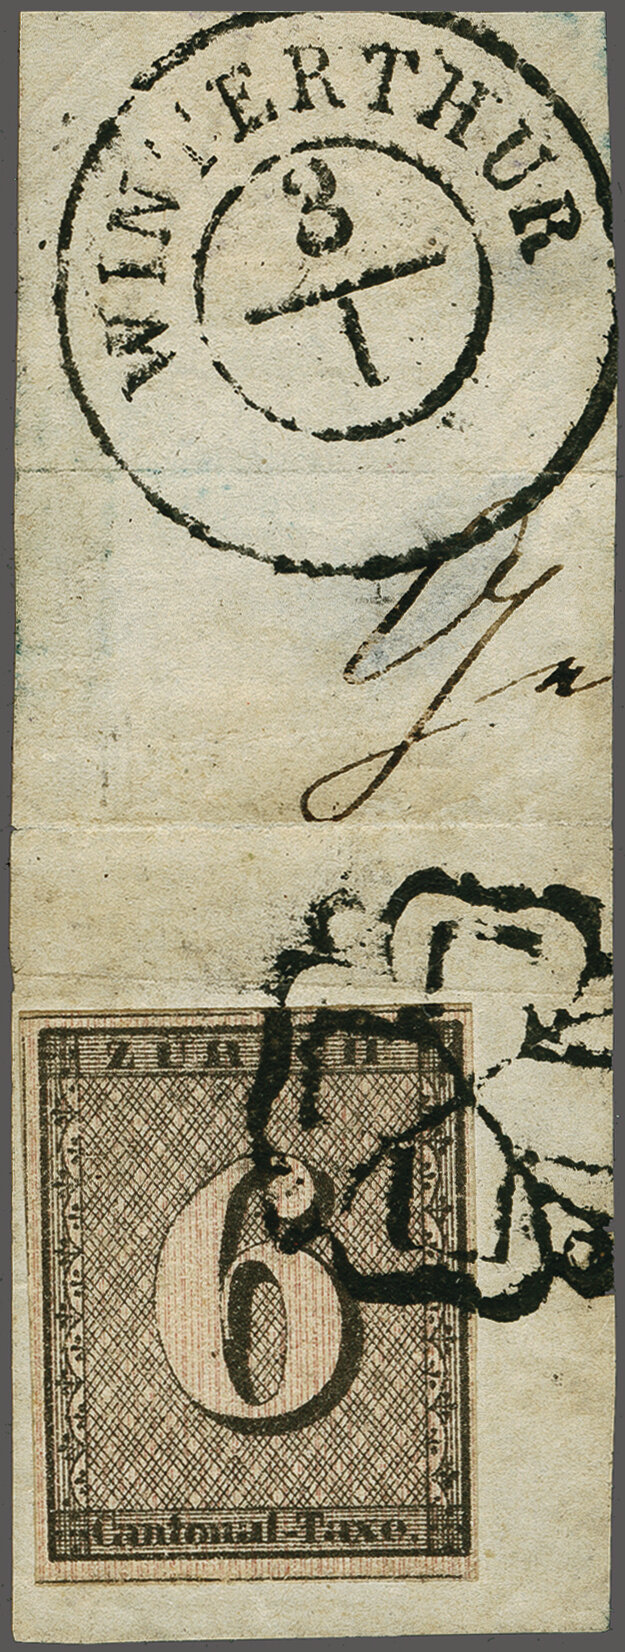 WINTERTHUR
3
1
ZÜRICH
6
Cantonal-Taxe.